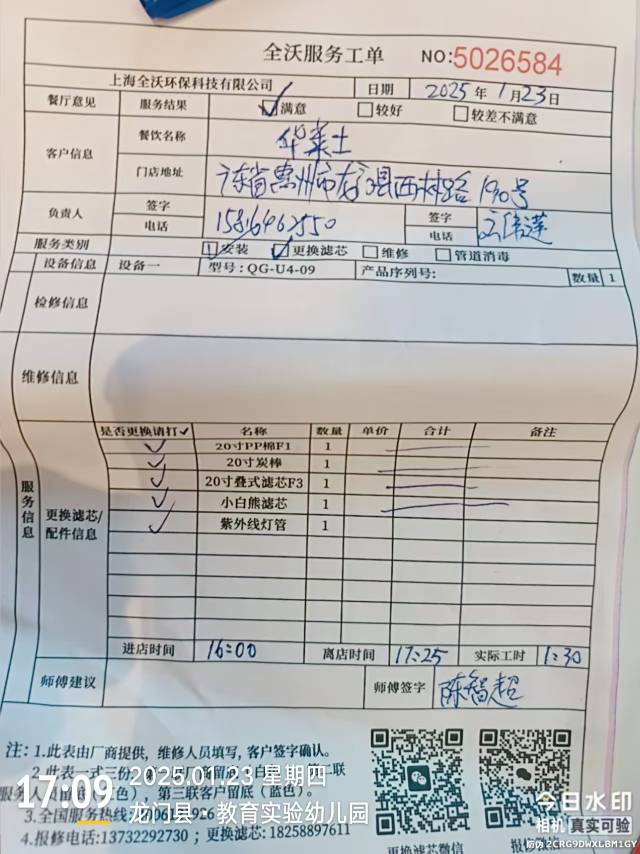 全沃服务工单 NO:5026584
上海全沃环保科技有限公司 日期 2025年1月23日
餐厅意见 服务结果 满意 较好 较差不满意
客户信息 餐饮名称 华莱士
门店地址 广东省惠州市龙门县西林路190号
负责人 签字 签字
电话 电话
服务类别 安装 更换滤芯 维修 管道消毒
设备信息 设备一 型号:QG-U4-09 产品序列号: 数量 1
检修信息
维修信息
服务信息
更换滤芯/配件信息
是否更换请打✓ 名称 数量 单价 合计 备注
✓ 20寸PP棉F1 1
✓ 20寸炭棒 1
✓ 20寸叠式滤芯F3 1
✓ 小白熊滤芯 1
✓ 紫外线灯管 1
进店时间 16:00 离店时间 17:25 实际工时 1:30
师傅建议 师傅签字 陈智超
注:1.此表由厂商提供,维修人员填写,客户签字确认。
2.此表一式三份
第三联客户留底(蓝色)。
3.全国服务热线
4.报修电话:13732292730;更换滤芯:18258897611
17:09
2025.01.23 星期四
教育实验幼儿园
更换滤芯微信
今日水印
相机 真实可验